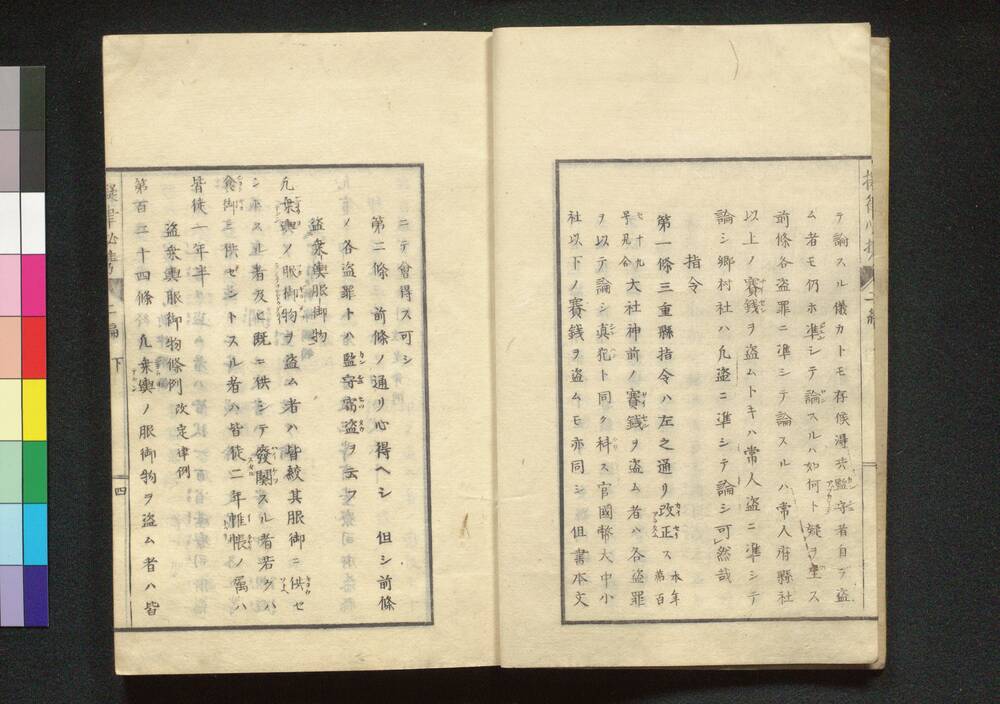 テ論スル儀カトモ存候得共監守者自ラ盗
ム者モ仍ホ準シテ論スルハ如何ト疑ヲ生ス
前條各盗罪ニ準シテ論スルハ常人府縣社
以上ノ賽錢ヲ盗ムトキハ常人盗ニ準シテ
論シ郷村社ハ凡盗ニ準シテ論シ可然哉
指令
第一條三重縣指令ハ左之通リ改正ス 本年第百
七十九号見合 大社神前ノ賽錢ヲ盗ム者ハ各盗罪
ヲ以テ論シ真犯ト同ク科ス官國幣大中小
社以下ノ賽錢ヲ盗ムモ亦同シ 但書本文
ニテ會得ス可シ
第二條 前條ノ通リ心得ヘシ 但シ前條
ノ各盗罪トハ監守常盗ヲ云フ
盗乗輿服御物
凡乗輿ノ服御物ヲ盗ム者ハ皆絞其服御ニ供セ
シトスル者及ヒ既ニ供シテ廢闕スル者若クハ
食御ニ供セシトスル者ハ皆徒二年帷帳ノ属ハ
皆徒一年半
盗乗輿服御物條例 改定律例
第百二十四條 凡乗輿ノ服御物ヲ盗ム者ハ皆
二編 下
四